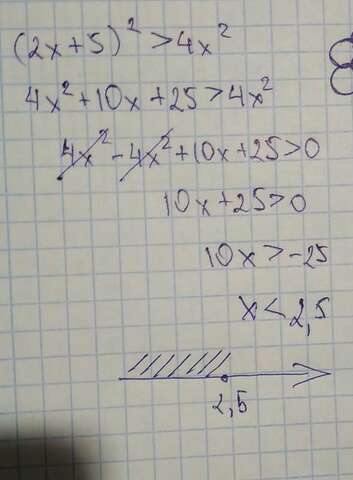 (2x+5)²>4x²
4x²+10x+25>4x²
4x²-4x²+10x+25>0
10x+25>0
10x>-25
x<2,5
2,5